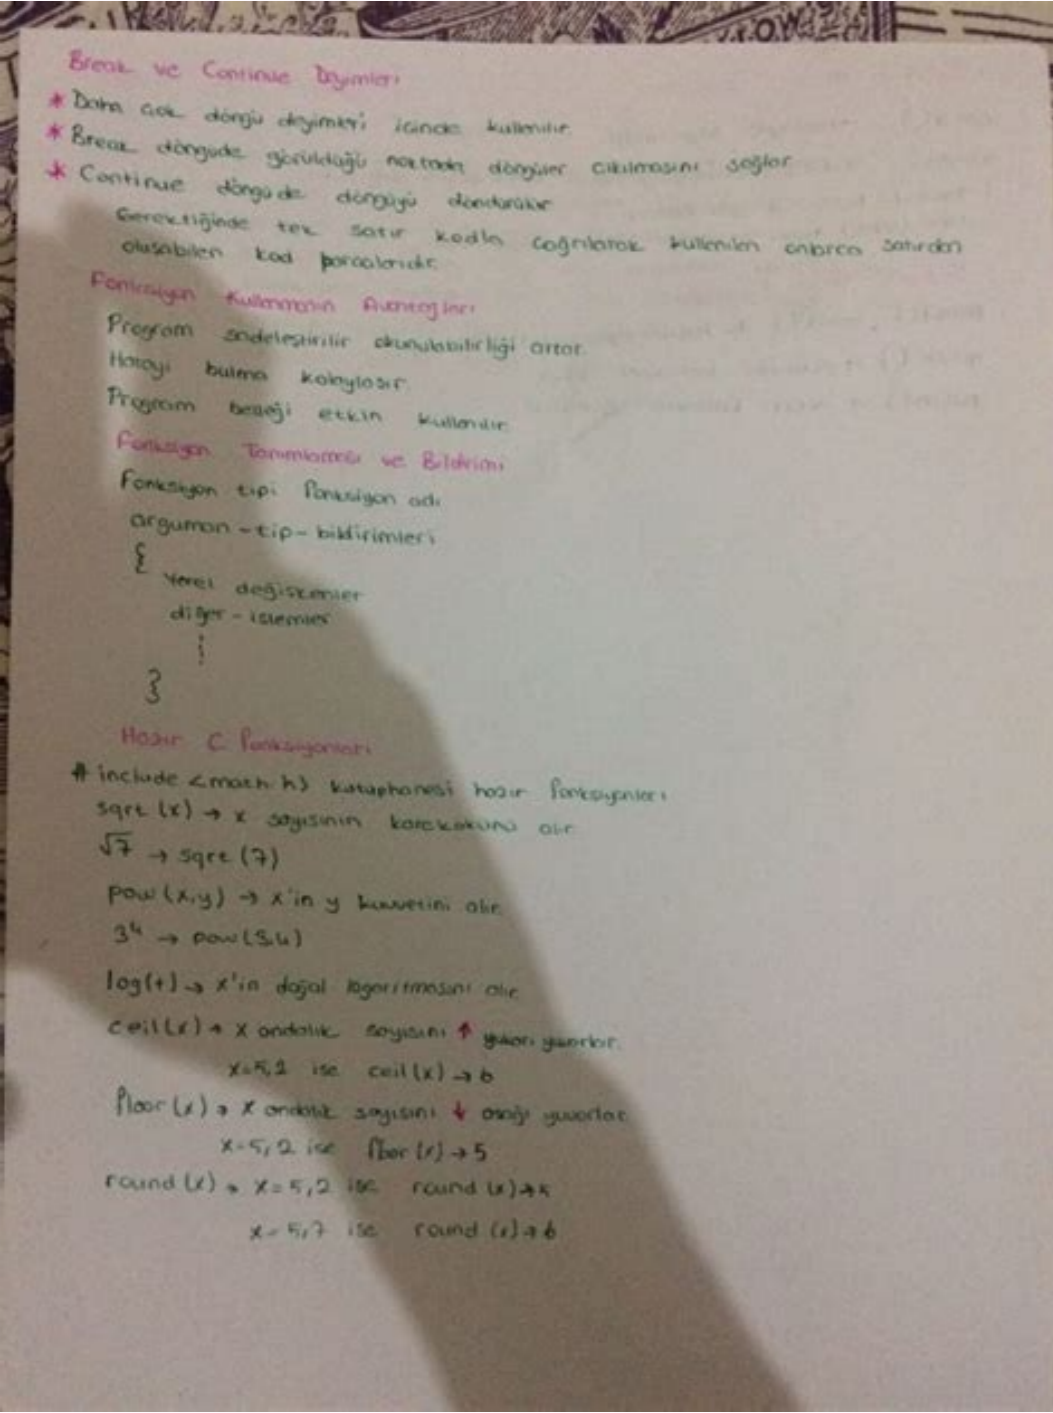 Break ve Continue Deyimleri
* Daha çok döngü deyimleri içinde kullanılır.
* Break döngüde görüldüğü noktada döngüler çıkılmasını sağlar
* Continue döngüde döngüyü döndürülür
Gerektiğinde tek satır kodla çağrılarak kullanılan onlarca satırdan
oluşabilen kod parçalarıdır.
Fonksiyon Kullanmanın Avantajları
Program sadeleştirilir okunulabilirliği artar.
Hatayı bulma kolaylaşır.
Program belleği etkin kullanılır.
Fonksiyon Tanımlaması ve Bildirimi
Fonksiyon tipi fonksiyon adı
arguman-tip-bildirimleri
{
Yerel değişkenler
diğer-işlemler
⋮
}
Hazır C Fonksiyonları
# include <math.h> kütüphanesi hazır fonksiyonları
sqrt (x) → x sayısının karekökünü alır
√7 → sqrt (7)
pow (x,y) → x'in y kuvvetini alır.
3⁴ → pow(3,4)
log(+) → x'in doğal logaritmasını alır
ceil(x) → x ondalık sayısını ↑ yukarı yuvarlar.
x=5,2 ise ceil(x) → 6
floor (x) → x ondalık sayısını ↓ aşağı yuvarlar
x=5,2 ise floor (x) → 5
round (x) → x=5,2 ise round (x) → 5
x=5,7 ise round (x) → 6